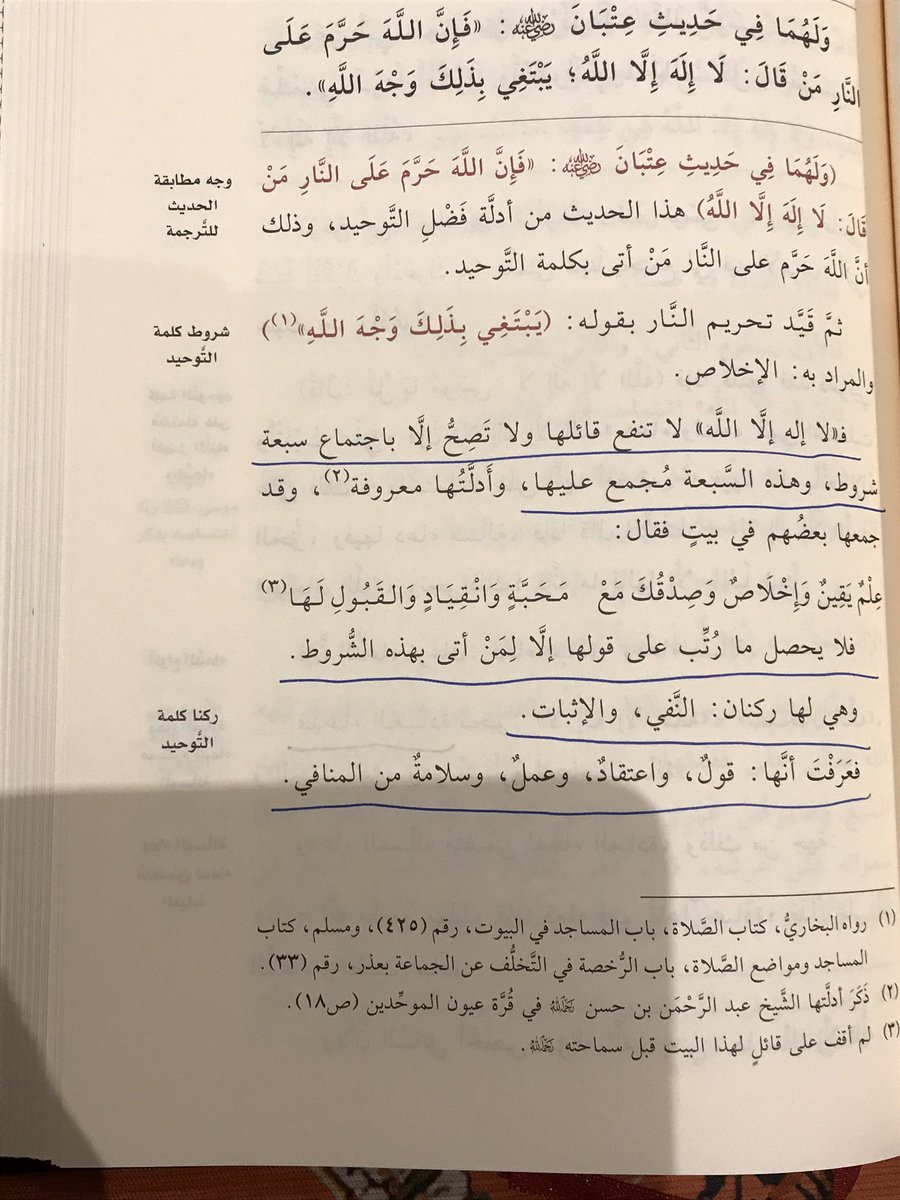 وَلَهُمَا فِي حَدِيثِ عِتْبَانَ رضي الله عنه: «فَإِنَّ اللَّهَ حَرَّمَ عَلَى
النَّارِ مَنْ قَالَ: لَا إِلَهَ إِلَّا اللَّهُ؛ يَبْتَغِي بِذَلِكَ وَجْهَ اللَّهِ».
وجه مطابقة
الحديث
للتَّرجمة
(وَلَهُمَا فِي حَدِيثِ عِتْبَانَ رضي الله عنه: «فَإِنَّ اللَّهَ حَرَّمَ عَلَى النَّارِ مَنْ
قَالَ: لَا إِلَهَ إِلَّا اللَّهُ) هذا الحديث من أدلَّة فَضْلِ التَّوحيد، وذلك
أنَّ اللَّهَ حَرَّم على النَّار مَنْ أتى بكلمة التَّوحيد.
شروط كلمة
التَّوحيد
ثمَّ قَيَّد تحريم النَّار بقوله: (يَبْتَغِي بِذَلِكَ وَجْهَ اللَّهِ»(١))
والمراد به: الإخلاص.
فـ«لا إله إلَّا اللَّه» لا تنفع قائلها ولا تَصِحُّ إلَّا باجتماع سبعة
شروط، وهذه السَّبعة مُجمع عليها، وأَدلَّتُها معروفة(٢)، وقد
جمعها بعضُهم في بيتٍ فقال:
عِلْمٌ يَقِينٌ وَإِخْلَاصٌ وَصِدْقُكَ مَعْ مَحَبَّةٍ وَانْقِيَادٍ وَالقَبُولِ لَهَا(٣)
فلا يحصل ما رُتِّب على قولها إلَّا لِمَنْ أتى بهذه الشُّروط.
ركنا كلمة
التَّوحيد
وهي لها ركنان: النَّفي، والإثبات.
فعَرَفْتَ أنَّها: قولٌ، واعتقادٌ، وعملٌ، وسلامةٌ من المنافي.
(١) رواه البخاريُّ، كتاب الصَّلاة، باب المساجد في البيوت، رقم (٤٢٥)، ومسلم، كتاب
المساجد ومواضع الصَّلاة، باب الرُّخصة في التَّخلُّف عن الجماعة بعذر، رقم (٣٣).
(٢) ذَكَرَ أدلَّتها الشَّيخ عبد الرَّحْمَن بن حسن رحمه الله في قُرَّة عيون الموحِّدين (ص١٨).
(٣) لم أقف على قائلٍ لهذا البيت قبل سماحته رحمه الله.